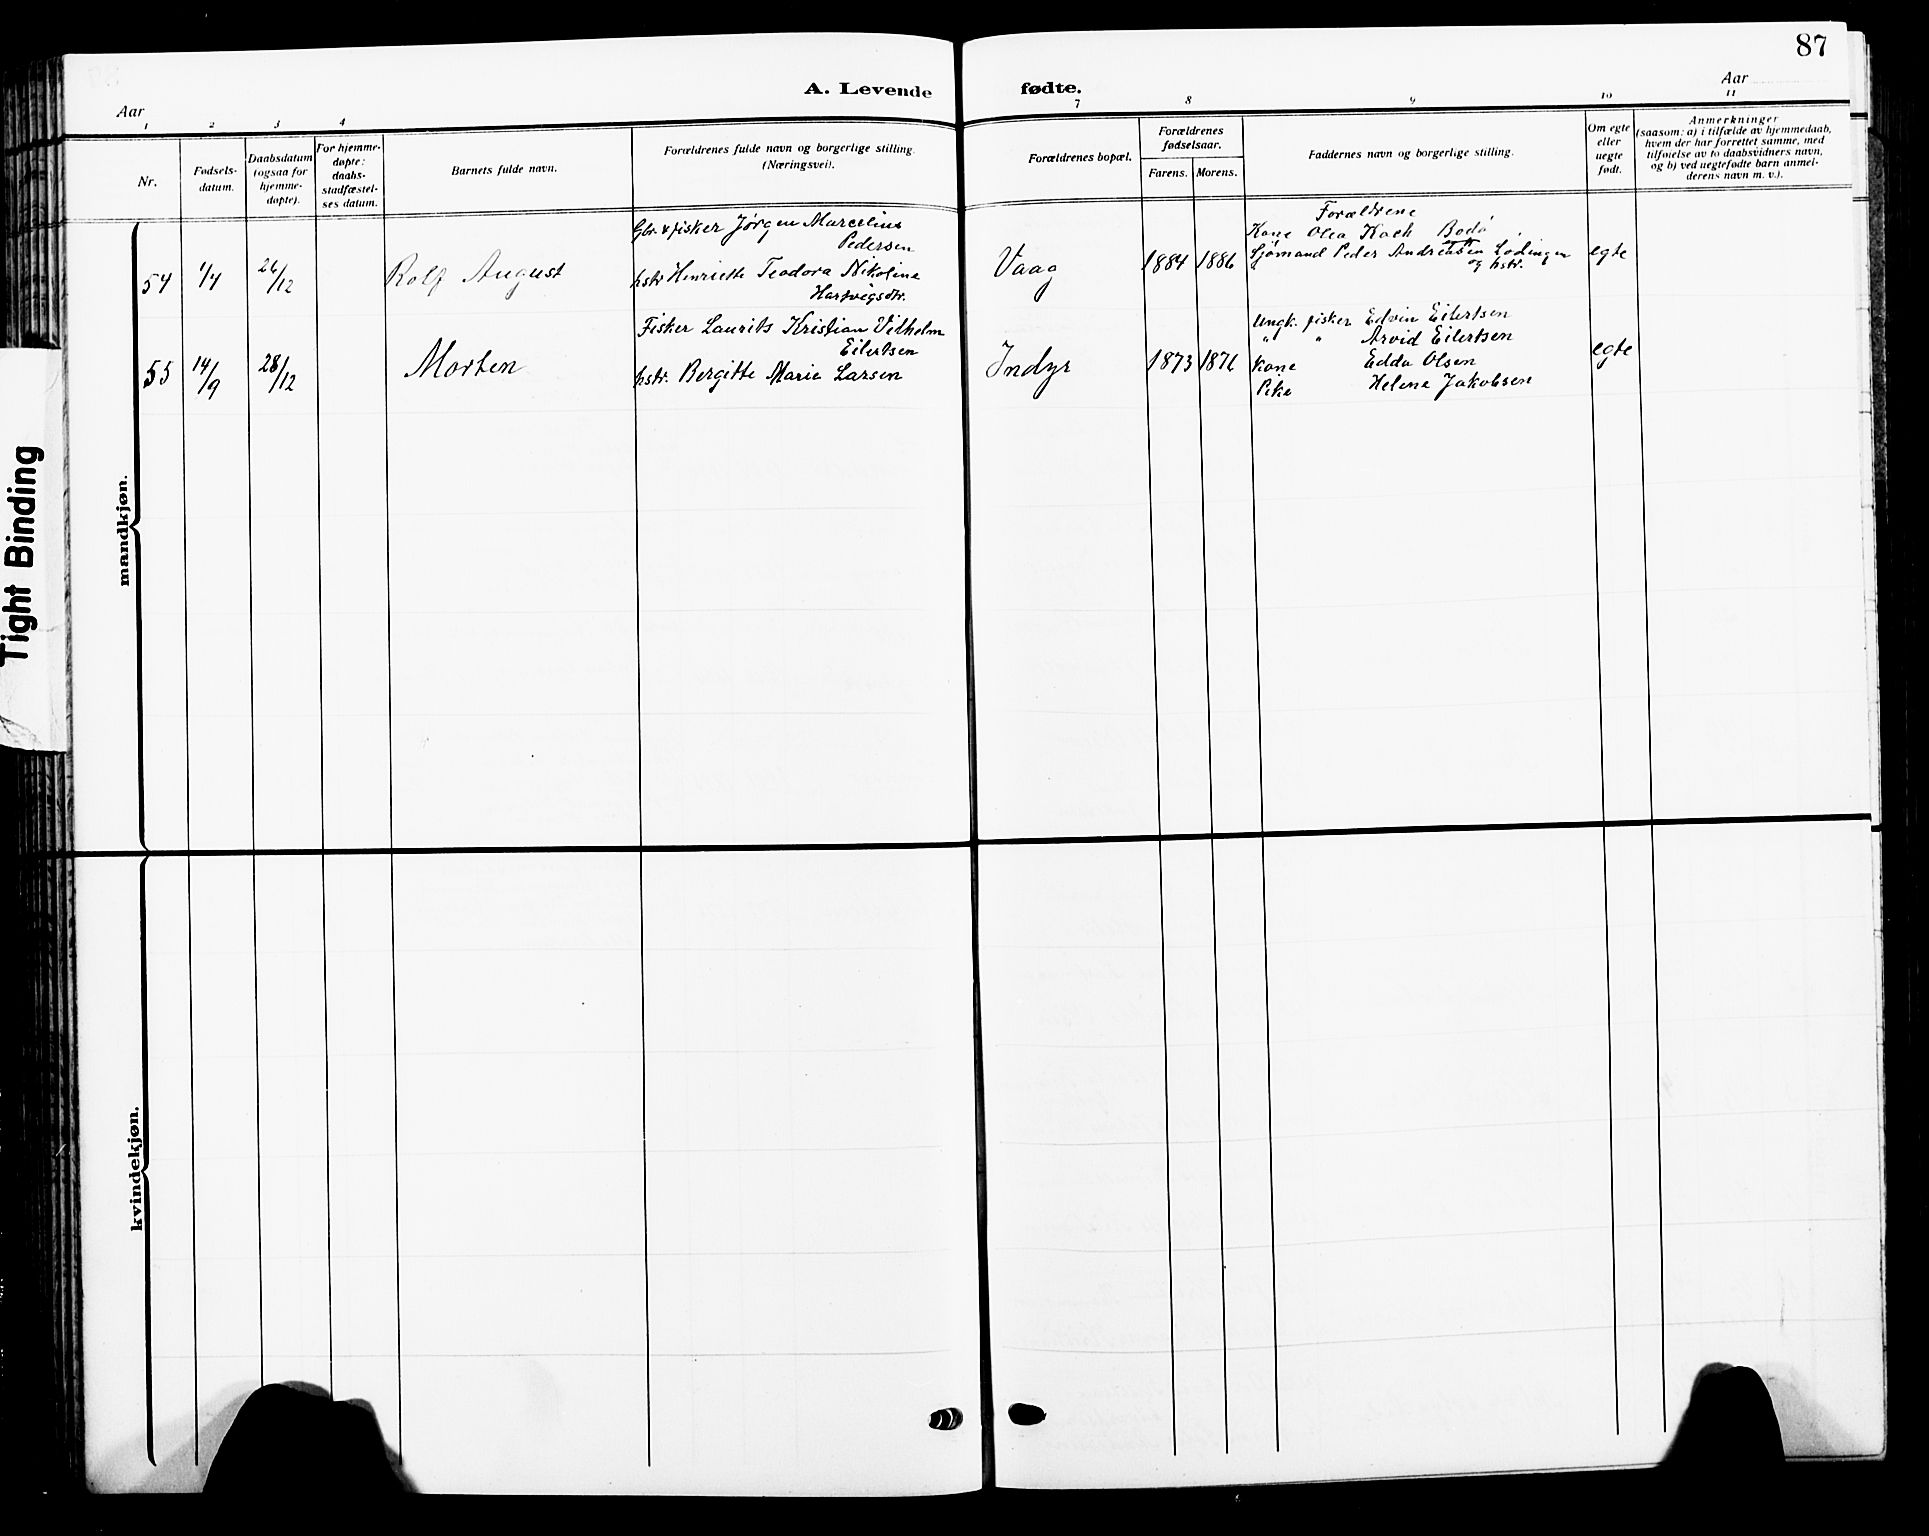 87
A. Levende fødte.
Aar
Aar
1 2 3 4 7 8 9 10 11
Nr.
Fødsels-
datum.
Daabsdatum
(ogsaa for
hjemme-
døpte).
For hjemme-
døpte:
daabs-
stadfæstel-
ses datum.
Barnets fulde navn.
Forældrenes fulde navn og borgerlige stilling.
(Næringsvei).
Forældrenes bopæl.
Forældrenes
fødselsaar.
Farens. Morens.
Faddernes navn og borgerlige stilling.
Om egte
eller
uegte
født.
Anmerkninger
(saasom: a) i tilfælde av hjemmedaab,
hvem der har forrettet samme, med
tilføielse av to daabsvidners navn,
og b) ved uegtefødte barn anmel-
derens navn m. v.).
mandkjøn.
54 1/4 26/12 Rolf August
Gbr. & fisker Jørgen Marcelius
Pedersen
hstr Henriette Teodora Nikoline
Hartvigsdtr.
Vaag 1884 1886
Forældrene
Kone Olea Koch Bodø
Sjømand Peder Andreassen Lødingen
og hstr.
egte
55 14/9 28/12 Morten
Fisker Laurits Kristian Vilhelm
Eilertsen
hstr. Bergitte Marie Larsen
Indyr 1873 1876
Ungk. fisker Edvin Eilertsen
" " Arvid Eilertsen
Kone Edda Olsen
Pike Helene Jakobsen
egte
kvindekjøn.
Tight Binding